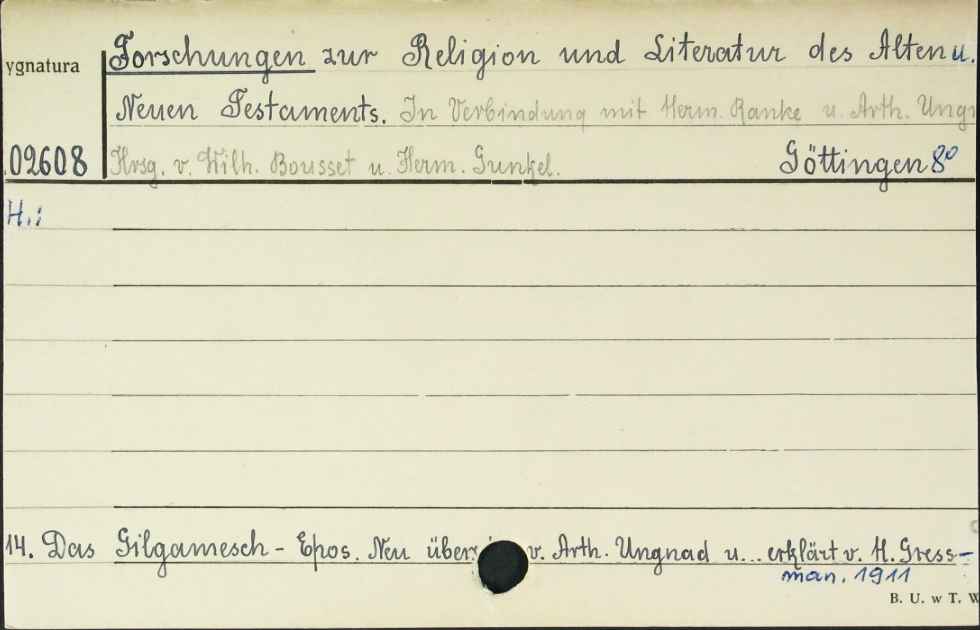 Forschungen zur Religion und Literatur des Alten u.
ygnatura
Neuen Testaments. In Verbindung mit Herm. Ranke u. Arth. Ungn
02608 Hrsg. v. Wilh. Bousset u. Herm. Gunkel. Göttingen 8º
H.:
14. Das Gilgamesch - Epos. Neu über v. Arth. Ungnad u... erklärt v. H. Gress-
man. 1911
B. U. w T. W